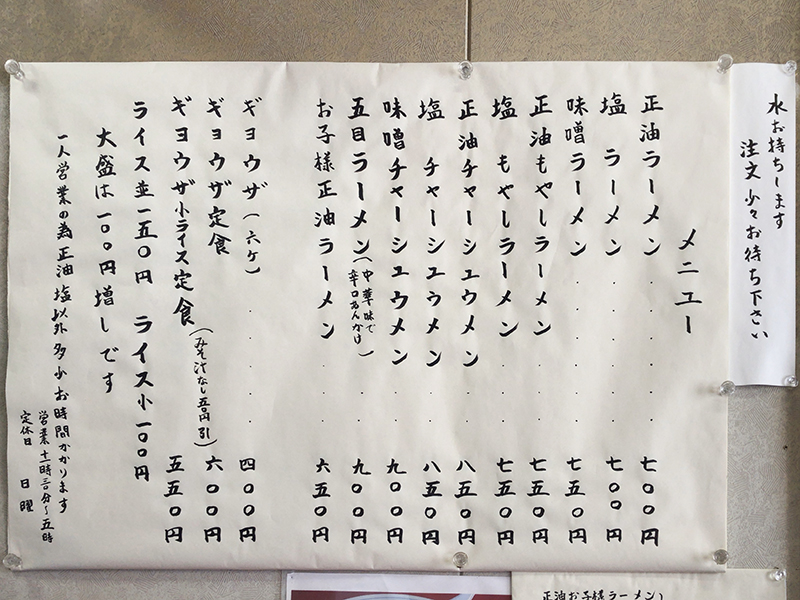 水お持ちします
注文少々お待ち下さい
メニュー
正油ラーメン......七〇〇円
塩ラーメン......七〇〇円
味噌ラーメン......七五〇円
正油もやしラーメン...七五〇円
塩もやしラーメン...七五〇円
正油チャーシュウメン..八五〇円
塩チャーシュウメン..八五〇円
味噌チャーシュウメン..九〇〇円
五目ラーメン(中華味で辛口あんかけ)..九〇〇円
お子様正油ラーメン...六五〇円
ギョウザ(六ケ).....四〇〇円
ギョウザ定食 六〇〇円
ギョウザ小ライス定食(みそ汁なし五〇円引)五五〇円
ライス並一五〇円 ライス小一〇〇円
大盛は一〇〇円増しです
一人営業の為正油塩以外多少お時間かかります
営業十一時三〇分〜五時
定休日 日曜
正油お子様ラーメン)